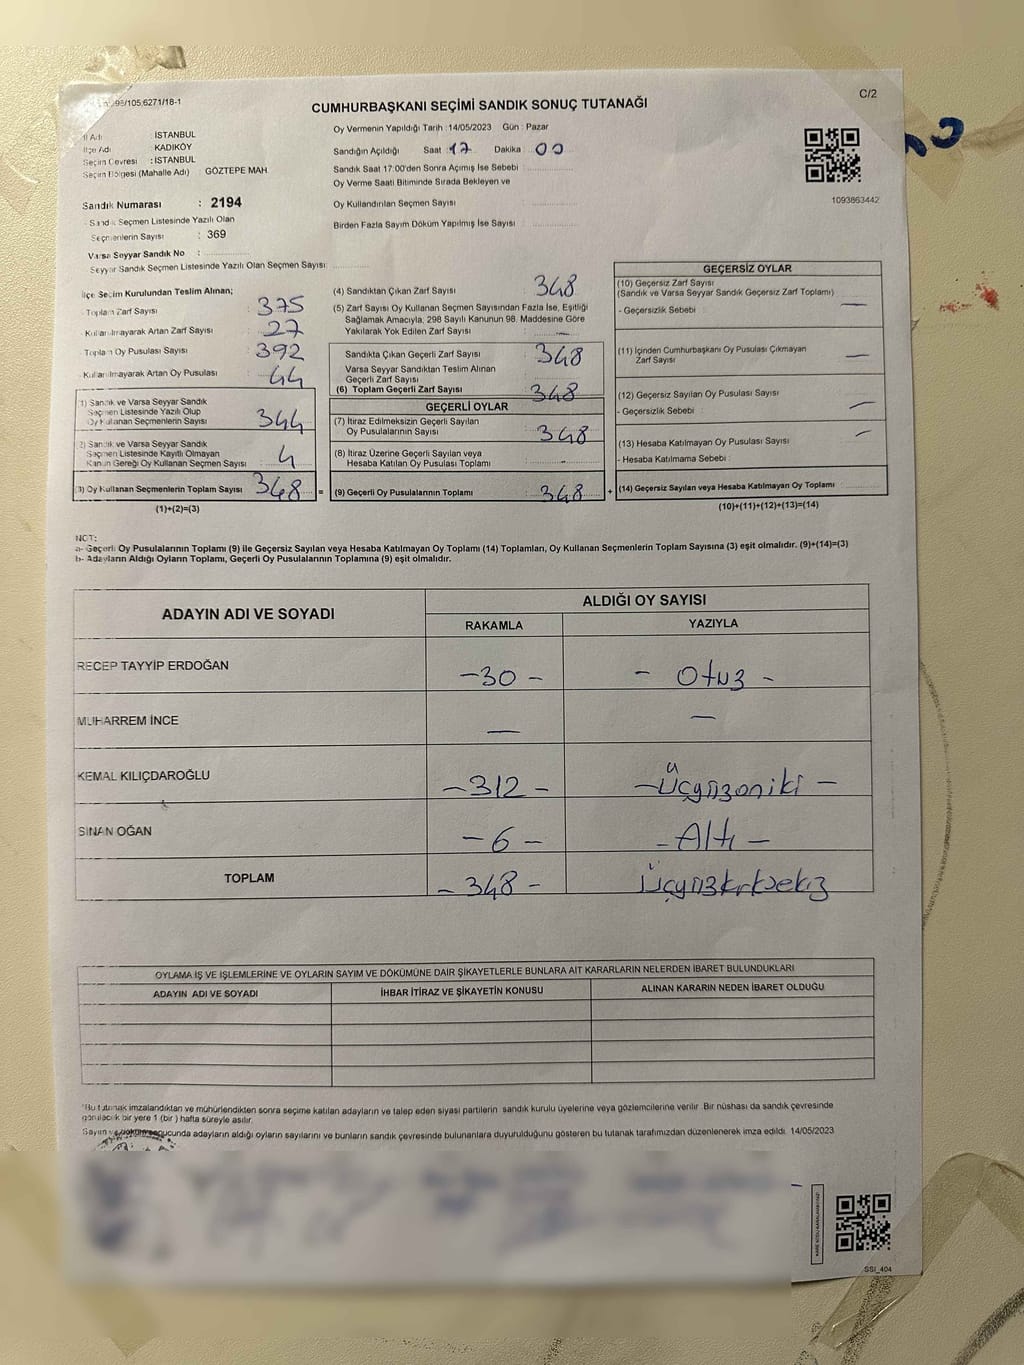 CUMHURBAŞKANI SEÇİMİ SANDIK SONUÇ TUTANAĞI
C/2
İl Adı : İSTANBUL
İlçe Adı : KADIKÖY
Seçim Çevresi : İSTANBUL
Seçim Bölgesi (Mahalle Adı) : GÖZTEPE MAH.
Sandık Numarası : 2194
Sandık Seçmen Listesinde Yazılı Olan
Seçmenlerin Sayısı : 369
Varsa Seyyar Sandık No :
Seyyar Sandık Seçmen Listesinde Yazılı Olan Seçmen Sayısı:
Oy Vermenin Yapıldığı Tarih : 14/05/2023 Gün : Pazar
Sandığın Açıldığı Saat : 17 Dakika : 00
Sandık Saat 17:00'den Sonra Açımış İse Sebebi :
Oy Verme Saati Bitiminde Sırada Bekleyen ve
Oy Kullandırılan Seçmen Sayısı :
Birden Fazla Sayım Döküm Yapılmış İse Sayısı :
1093863442
İlçe Seçim Kurulundan Teslim Alınan;
Toplam Zarf Sayısı : 375
Kullanılmayarak Artan Zarf Sayısı : 27
Toplam Oy Pusulası Sayısı : 392
Kullanılmayarak Artan Oy Pusulası : 44
(1) Sandık ve Varsa Seyyar Sandık
Seçmen Listesinde Yazılı Olup
Oy Kullanan Seçmenlerin Sayısı 344
(2) Sandık ve Varsa Seyyar Sandık
Seçmen Listesinde Kayıtlı Olmayan
Kanun Gereği Oy Kullanan Seçmen Sayısı 4
(3) Oy Kullanan Seçmenlerin Toplam Sayısı 348 =
(1)+(2)=(3)
(4) Sandıktan Çıkan Zarf Sayısı : 348
(5) Zarf Sayısı Oy Kullanan Seçmen Sayısından Fazla İse, Eşitliği
Sağlamak Amacıyla, 298 Sayılı Kanunun 98. Maddesine Göre
Yakılarak Yok Edilen Zarf Sayısı : —
Sandıkta Çıkan Geçerli Zarf Sayısı : 348
Varsa Seyyar Sandıktan Teslim Alınan
Geçerli Zarf Sayısı :
(6) Toplam Geçerli Zarf Sayısı : 348
GEÇERLİ OYLAR
(7) İtiraz Edilmeksizin Geçerli Sayılan
Oy Pusulalarının Sayısı : 348
(8) İtiraz Üzerine Geçerli Sayılan veya
Hesaba Katılan Oy Pusulası Toplamı : -
(9) Geçerli Oy Pusulalarının Toplamı : 348 +
GEÇERSİZ OYLAR
(10) Geçersiz Zarf Sayısı
(Sandık ve Varsa Seyyar Sandık Geçersiz Zarf Toplamı) : —
- Geçersizlik Sebebi :
(11) İçinden Cumhurbaşkanı Oy Pusulası Çıkmayan
Zarf Sayısı : —
(12) Geçersiz Sayılan Oy Pusulası Sayısı : —
- Geçersizlik Sebebi :
(13) Hesaba Katılmayan Oy Pusulası Sayısı : —
- Hesaba Katılmama Sebebi :
(14) Geçersiz Sayılan veya Hesaba Katılmayan Oy Toplamı :
(10)+(11)+(12)+(13)=(14)
NOT:
a- Geçerli Oy Pusulalarının Toplamı (9) ile Geçersiz Sayılan veya Hesaba Katılmayan Oy Toplamı (14) Toplamları, Oy Kullanan Seçmenlerin Toplam Sayısına (3) eşit olmalıdır. (9)+(14)=(3)
b- Adayların Aldığı Oyların Toplamı, Geçerli Oy Pusulalarının Toplamına (9) eşit olmalıdır.
ADAYIN ADI VE SOYADI
ALDIĞI OY SAYISI
RAKAMLA YAZIYLA
RECEP TAYYİP ERDOĞAN -30- - Otuz -
MUHARREM İNCE — —
KEMAL KILIÇDAROĞLU -312- -Üçyüzoniki -
SİNAN OĞAN -6- -Altı-
TOPLAM -348- Üçyüzkırksekiz
OYLAMA İŞ VE İŞLEMLERİNE VE OYLARIN SAYIM VE DÖKÜMÜNE DAİR ŞİKAYETLERLE BUNLARA AİT KARARLARIN NELERDEN İBARET BULUNDUKLARI
ADAYIN ADI VE SOYADI İHBAR İTİRAZ VE ŞİKAYETİN KONUSU ALINAN KARARIN NEDEN İBARET OLDUĞU
*Bu tutanak imzalandıktan ve mühürlendikten sonra seçime katılan adayların ve talep eden siyasi partilerin sandık kurulu üyelerine veya gözlemcilerine verilir. Bir nüshası da sandık çevresinde
görülecek bir yere 1 (bir) hafta süreyle asılır.
Sayım ve döküm sonucunda adayların aldığı oyların sayılarını ve bunların sandık çevresinde bulunanlara duyurulduğunu gösteren bu tutanak tarafımızdan düzenlenerek imza edildi. 14/05/2023
SSI_404